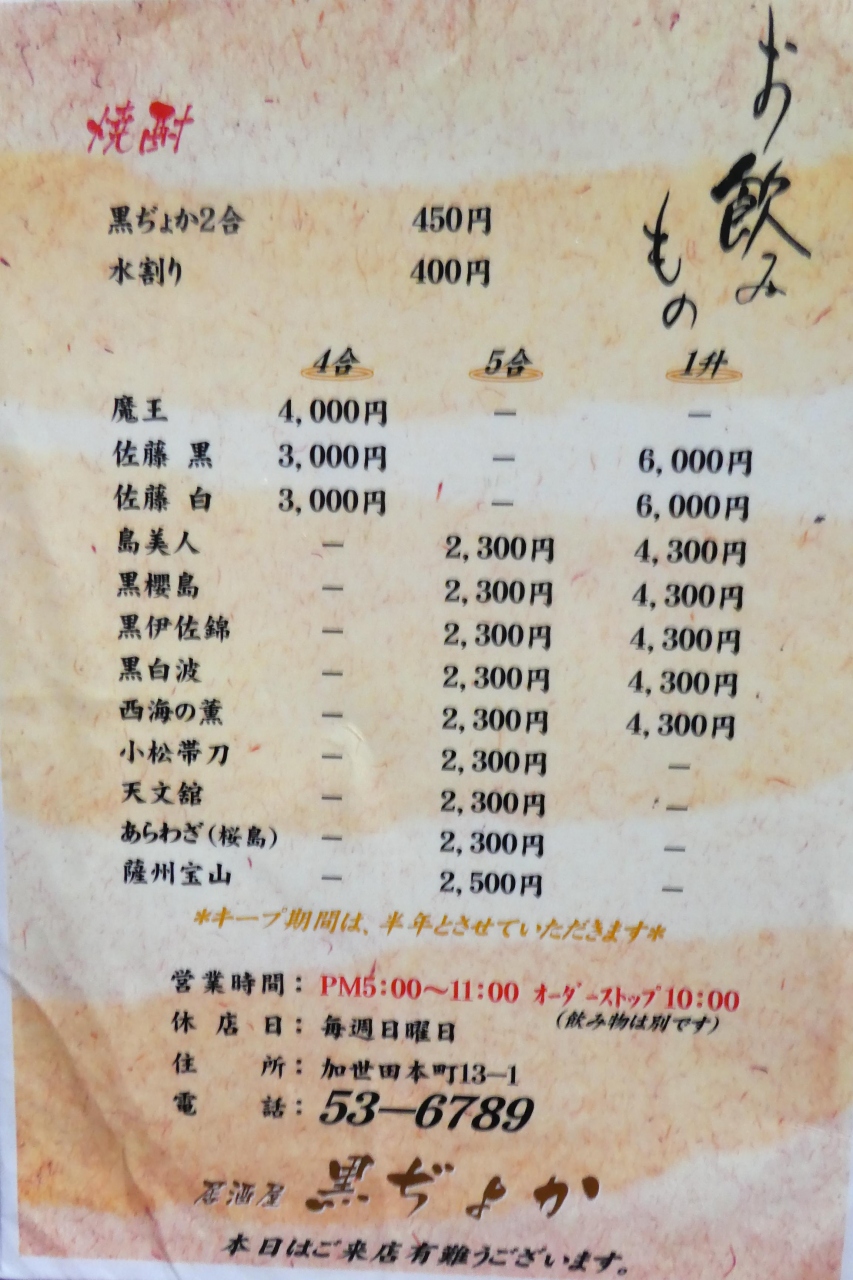 お飲み
もの
焼酎
黒ぢょか2合 450円
水割り 400円
4合 5合 1升
魔王 4,000円 — —
佐藤 黒 3,000円 — 6,000円
佐藤 白 3,000円 — 6,000円
島美人 — 2,300円 4,300円
黒櫻島 — 2,300円 4,300円
黒伊佐錦 — 2,300円 4,300円
黒白波 — 2,300円 4,300円
西海の薫 — 2,300円 4,300円
小松帯刀 — 2,300円 —
天文舘 — 2,300円 —
あらわざ(桜島) — 2,300円 —
薩州宝山 — 2,500円 —
*キープ期間は、半年とさせていただきます*
営業時間：PM5:00～11:00 オーダーストップ10:00
(飲み物は別です)
休店日：毎週日曜日
住所：加世田本町13—1
電話：53—6789
居酒屋 黒ぢょか
本日はご来店有難うございます。